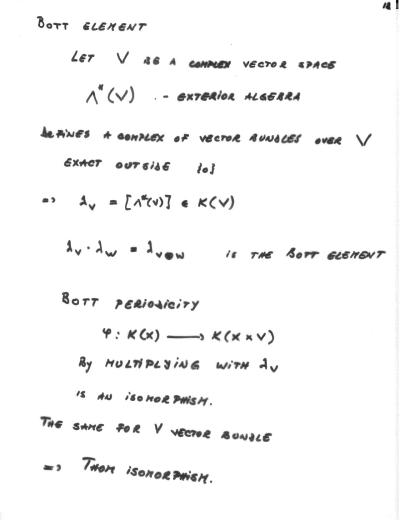 BOTT ELEMENT
LET V BE A COMPLEX VECTOR SPACE
Λ*(V) - EXTERIOR ALGEBRA
DEFINES A COMPLEX OF VECTOR BUNDLES OVER V
EXACT OUTSIDE {0}
=> λ_V = [Λ*(V)] ∈ K(V)
λ_V · λ_W = λ_{V⊕W} IS THE BOTT ELEMENT
BOTT PERIODICITY
φ : K(X) ⟶ K(X × V)
BY MULTIPLYING WITH λ_V
IS AN ISOMORPHISM.
THE SAME FOR V VECTOR BUNDLE
=> THOM ISOMORPHISM.